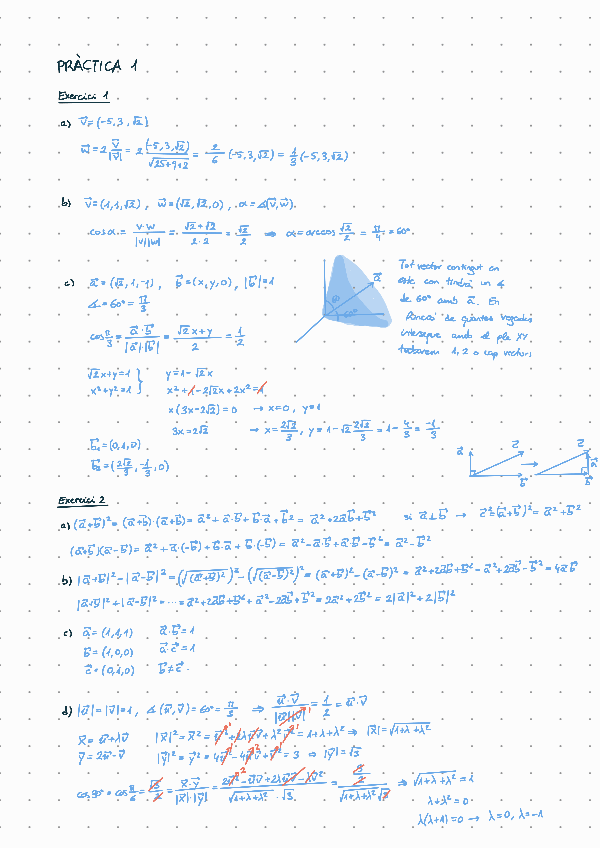 PRÀCTICA 1
Exercici 1
a) v⃗ = (-5,3,√2)
w⃗ = 2 v⃗/|v⃗| = 2 (-5,3,√2)/√(25+9+2) = 2/6 (-5,3,√2) = 1/3 (-5,3,√2)
b) v⃗ = (1,1,√2), w⃗ = (√2,√2,0), α = ∡(v⃗,w⃗).
cos α = v·w/|v||w| = √2+√2/2·2 = √2/2 ⇒ α = arccos √2/2 = π/4 = 60°.
c) a⃗ = (√2,1,-1), b⃗ = (x,y,0), |b⃗|=1
∡ = 60° = π/3
cos π/3 = a⃗·b⃗/|a⃗||b⃗| = √2x+y/2 = 1/2
a⃗
60°
Tot vector contingut en
este con tindrà un ∡
de 60° amb a⃗. En
funció de quantes vegades
interseque amb el pla XY,
trobarem 1, 2 o cap vectors
√2x+y=1
x²+y²=1 }
y=1-√2x
x²+1-2√2x+2x²=1
x(3x-2√2)=0 → x=0, y=1
3x=2√2 → x=2√2/3, y=1-√2 2√2/3 = 1-4/3 = -1/3
b⃗₁=(0,1,0)
b⃗₂=(2√2/3, -1/3, 0)
a⃗ c⃗ b⃗ → c⃗ a⃗ b⃗
Exercici 2
a) (a⃗+b⃗)² = (a⃗+b⃗)·(a⃗+b⃗) = a⃗²+a⃗·b⃗+b⃗·a⃗+b⃗² = a⃗²+2a⃗b⃗+b⃗² si a⃗⊥b⃗ → c⃗²=(a⃗+b⃗)²=a⃗²+b⃗²
(a⃗+b⃗)(a⃗-b⃗) = a⃗²+a⃗·(-b⃗)+b⃗·a⃗+b⃗·(-b⃗) = a⃗²-a⃗·b⃗+a⃗·b⃗-b⃗² = a⃗²-b⃗²
b) |a⃗+b⃗|²-|a⃗-b⃗|² = (√(a⃗+b⃗)²)²-(√(a⃗-b⃗)²)² = (a⃗+b⃗)²-(a⃗-b⃗)² = a⃗²+2a⃗b⃗+b⃗²-a⃗²+2a⃗b⃗-b⃗² = 4a⃗b⃗
|a⃗+b⃗|²+|a⃗-b⃗|² = ... = a⃗²+2a⃗b⃗+b⃗²+a⃗²-2a⃗b⃗+b⃗² = 2a⃗²+2b⃗² = 2|a⃗|²+2|b⃗|²
c) a⃗ = (1,1,1) a⃗·b⃗=1
b⃗ = (1,0,0) a⃗·c⃗=1
c⃗ = (0,1,0) b⃗≠c⃗
d) |u⃗|=|v⃗|=1, ∡(u⃗,v⃗)=60°=π/3 ⇒ u⃗·v⃗/|u⃗||v⃗| = 1/2 = u⃗·v⃗
x⃗ = u⃗+λv⃗ |x⃗|²=x⃗²=u⃗²+2λu⃗v⃗+λ²v⃗²=1+λ+λ² ⇒ |x⃗|=√(1+λ+λ²)
y⃗ = 2u⃗-v⃗ |y⃗|²=y⃗²=4u⃗²-4u⃗v⃗+v⃗²=3 ⇒ |y⃗|=√3
cos 30° = cos π/6 = √3/2 = x⃗·y⃗/|x⃗|·|y⃗| = 2u⃗²-u⃗v⃗+2λu⃗v⃗-λv⃗²/√(1+λ+λ²)·√3 = 3/2/√(1+λ+λ²)√3 ⇒ √(1+λ+λ²)=1
λ+λ²=0
λ(λ+1)=0 → λ=0, λ=-1